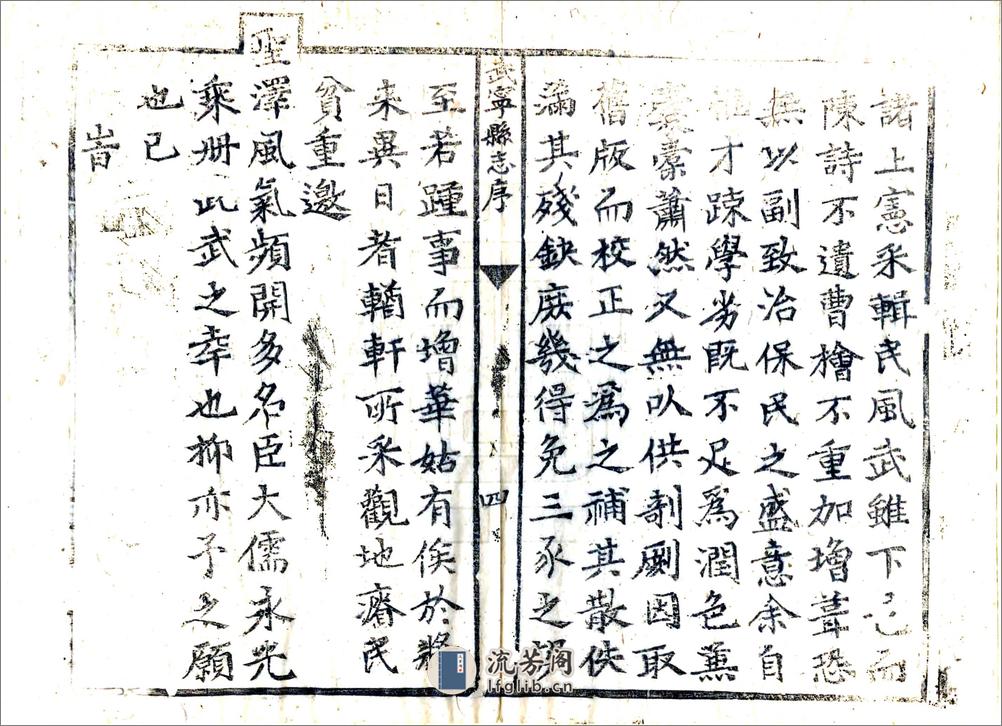 諸上憲采輯民風武雖下邑而
陳詩不遺曹檜不重加增葺恐
無以副致治保民之盛意余自
才踈學劣既不足爲潤色蕪
囊橐蕭然又無以供剞劂因取
舊版而校正之爲之補其散佚
滿其殘缺庶幾得免三豕之
武寧縣志序
四
至若踵事而增華姑有俟於將
來異日者輶軒所采觀地瘠民
貧重邀
聖澤風氣頻開多名臣大儒永光
乘冊此武之幸也抑亦予之願
也已
旹
流芳阁
lfglib.cn